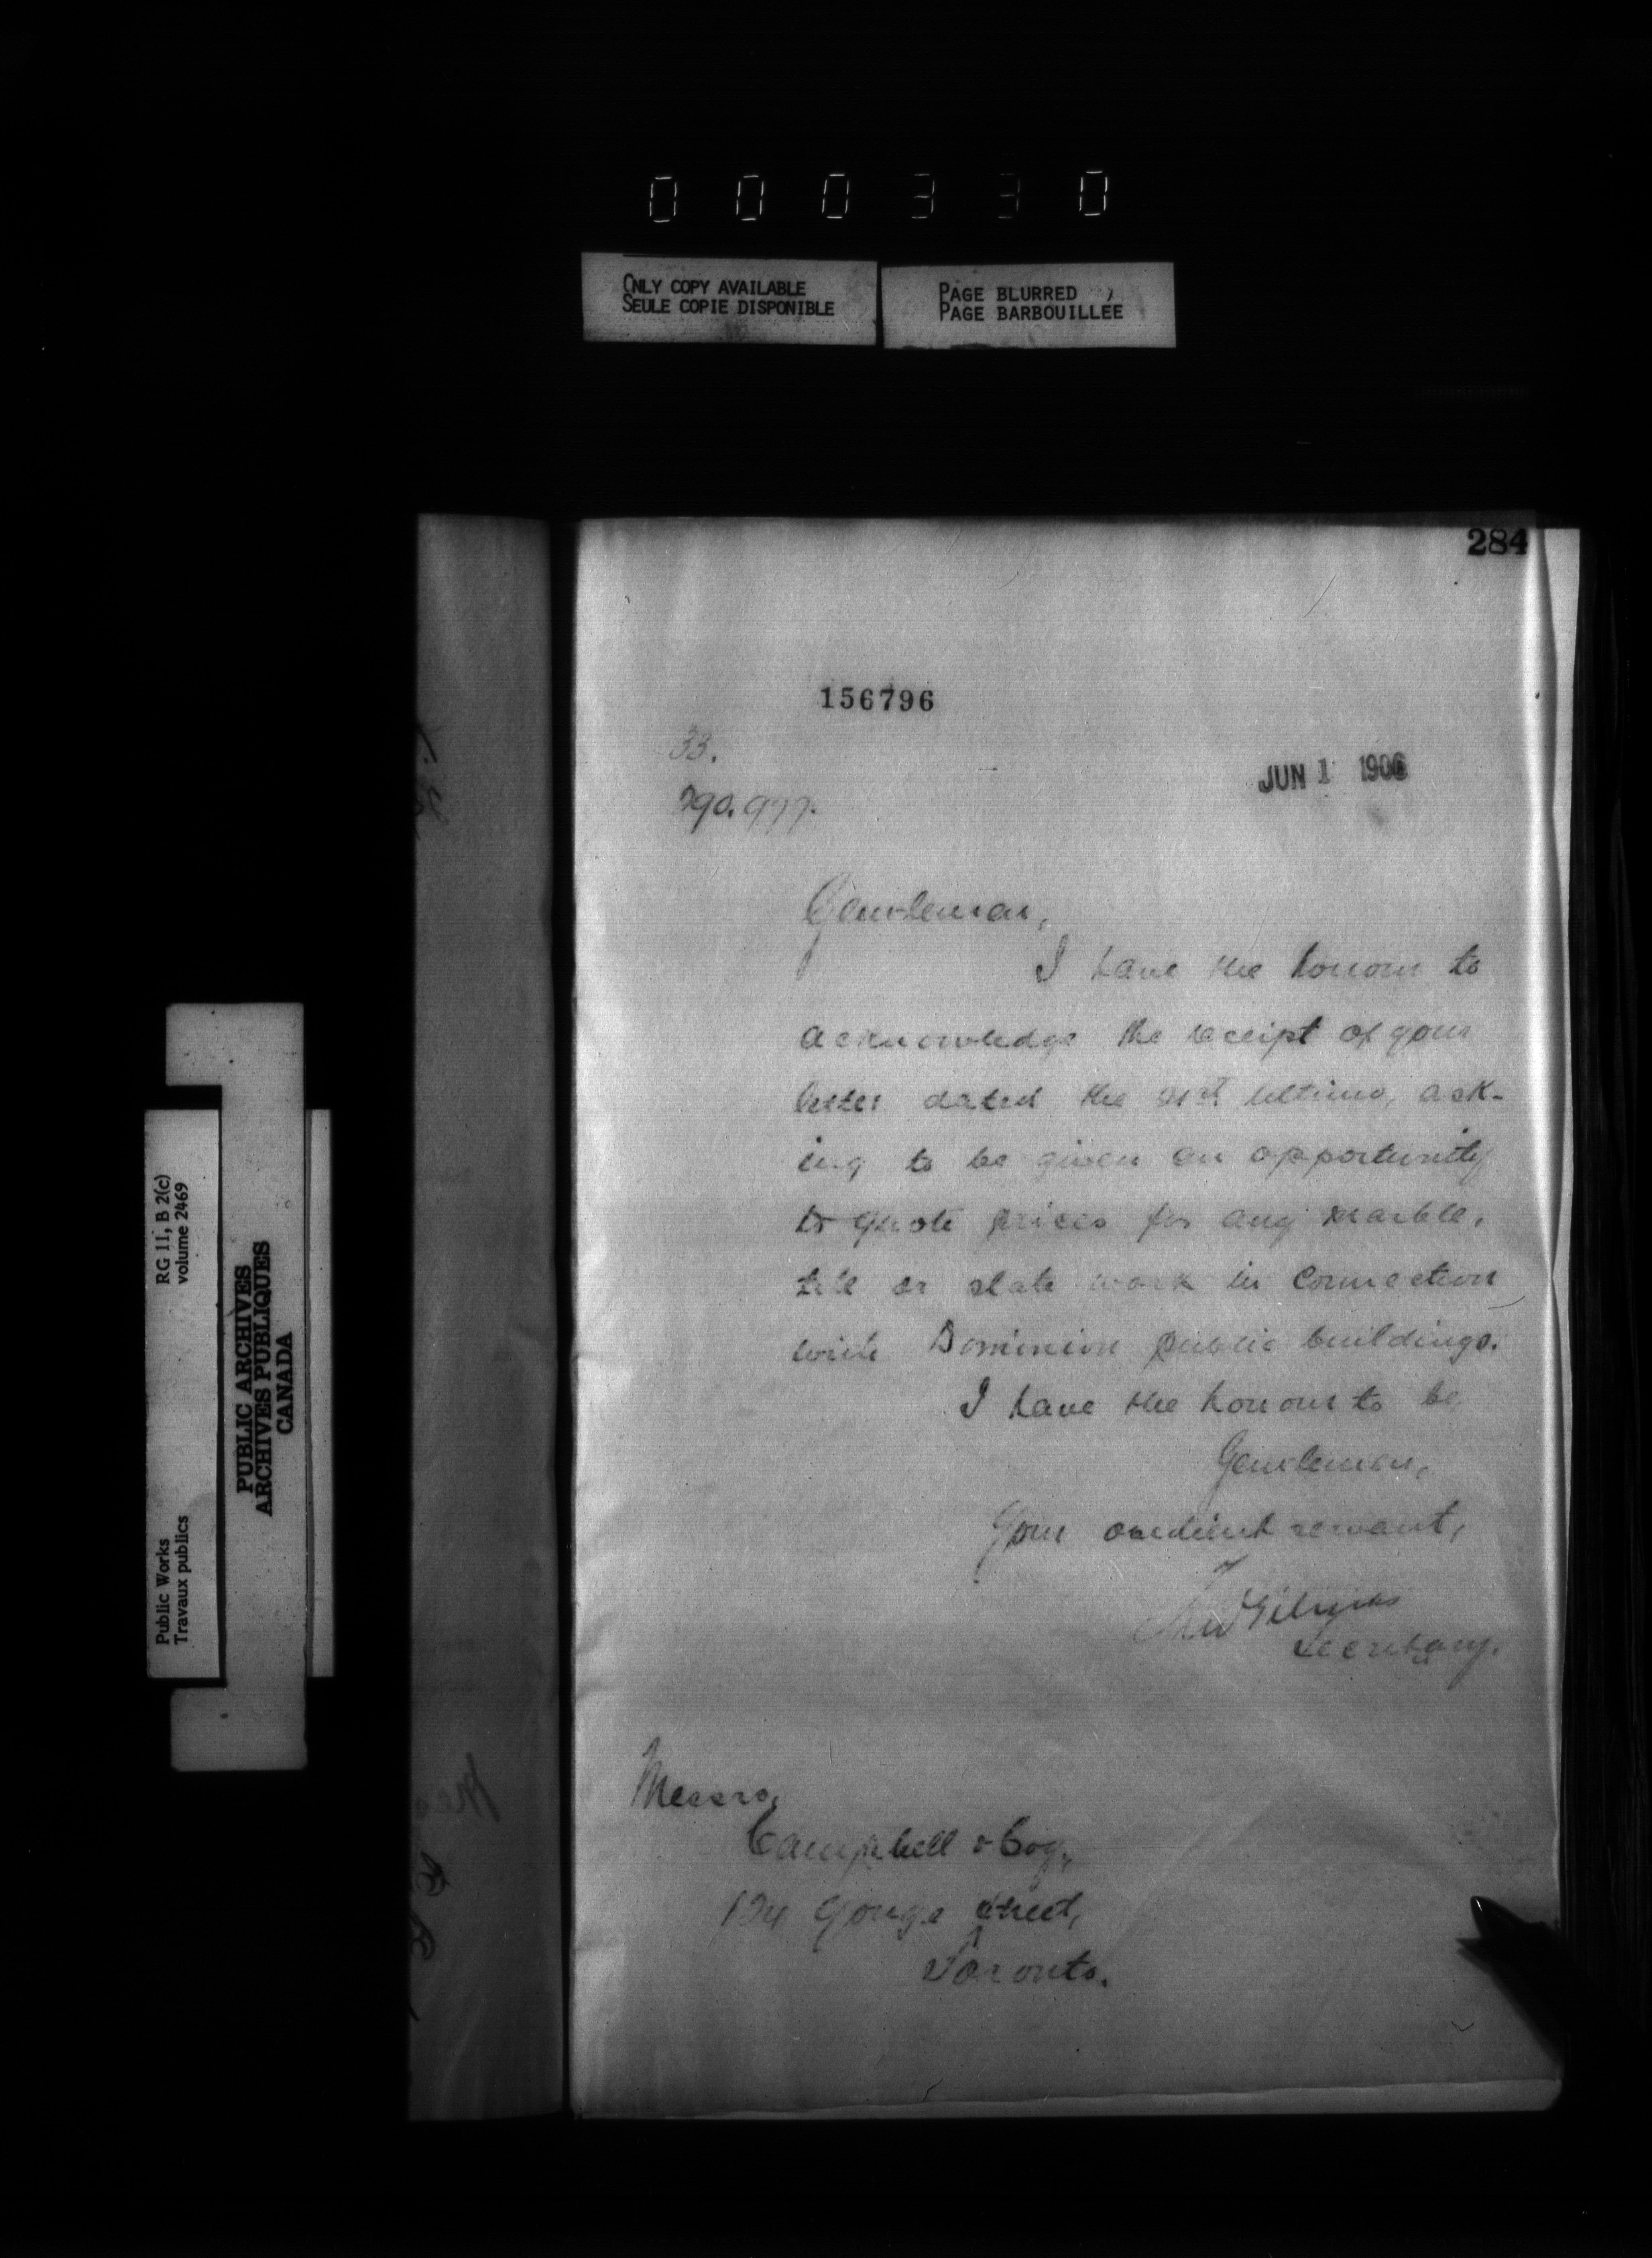 000330
ONLY COPY AVAILABLE
SEULE COPIE DISPONIBLE
PAGE BLURRED
PAGE BARBOUILLEE
284
156796
33.
JUN 1 1906
290.977.
Gentlemen,
I have the honour to
acknowledge the receipt of your
letter dated the ultimo, ask-
ing to be given an opportunity
to quote prices for any marble,
tile or slate work in connection
with Dominion public buildings.
I have the honour to be
Gentlemen,
Your obedient servant,
Secretary.
Messrs.
Campbell & Coy.,
Yonge street,
Toronto.
RG 11, B 2(c)
volume 2469
PUBLIC ARCHIVES
ARCHIVES PUBLIQUES
CANADA
Public Works
Travaux publics